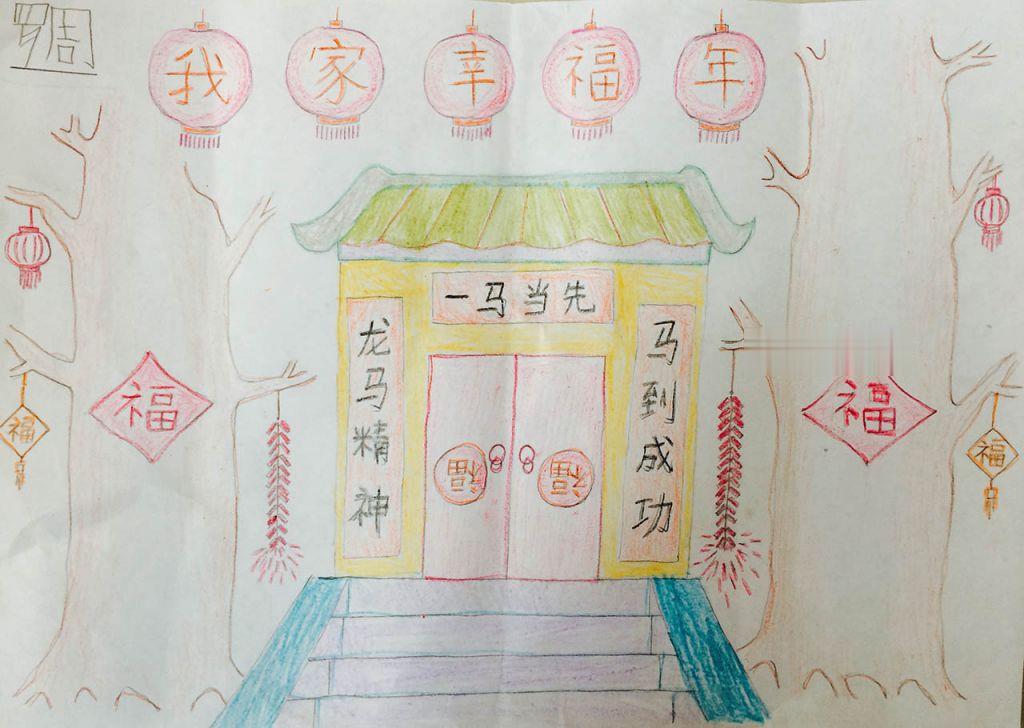 罗周
我家幸福年
一马当先
龙马精神
马到成功
福
福
福
福
福
福